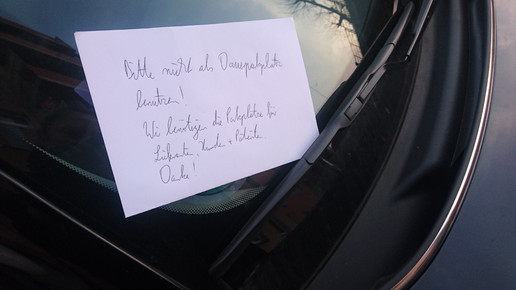 Bitte nicht als Dauerparkplatz
benutzen!
Wir benötigen die Parkplätze für
Lieferanten, Kunden &
Danke!